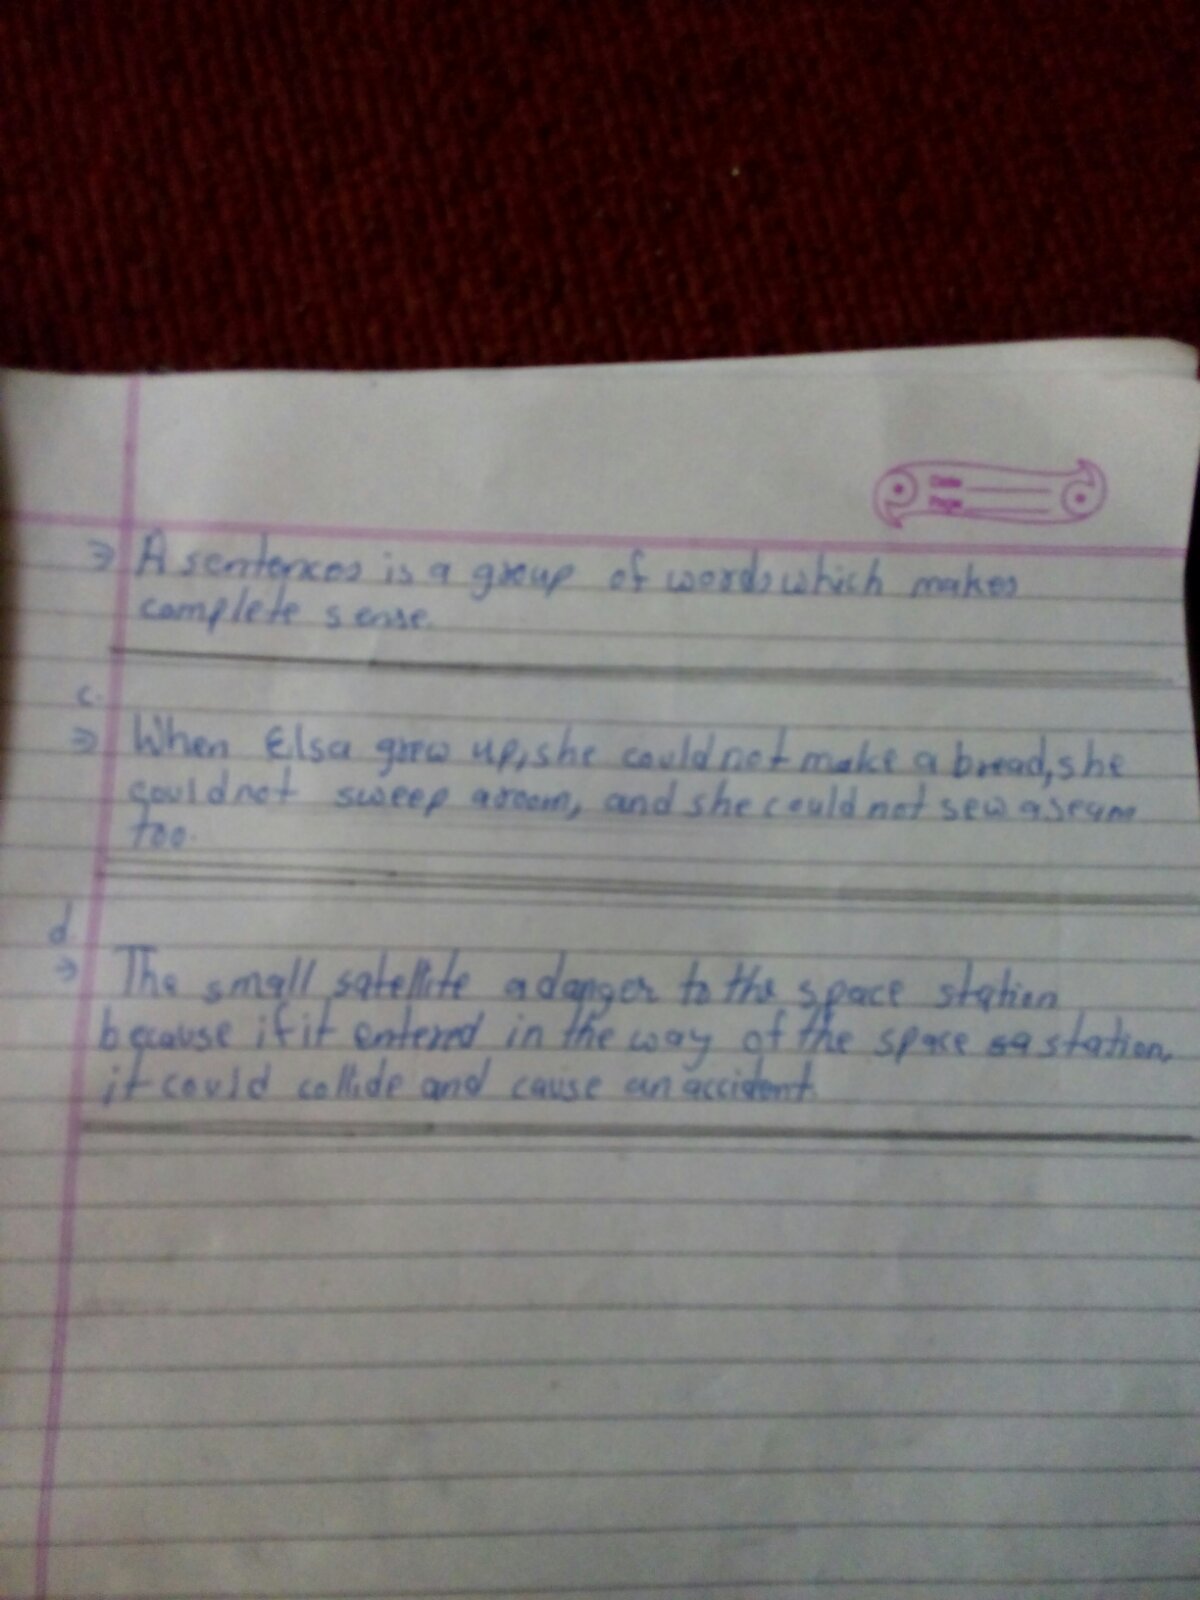 Date
Page
⇒ A sentences is a group of words which makes
complete sense.
c.
⇒ When Elsa grew up, she could not make a bread, she
could not sweep a room, and she could not sew a seam
too.
d
⇒ The small satellite a danger to the space station
because if it entered in the way of the space sa station,
it could collide and cause an accident.